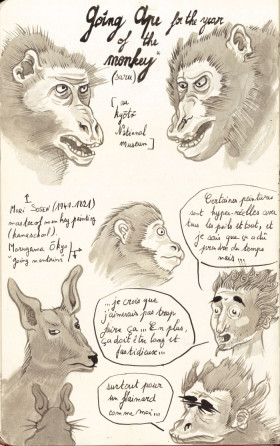 Going Ape for the year
of the
monkey"
(saru)
[au
Kyôto
National
museum]
Mori SOSEN (1747-1821)
master of monkey painting
Maruyama Ôkyo
Certaines peintures
sont hyper-réelles avec
tous les poils et tout, et
je sais que ça a dû
prendre du temps
mais !!!
...je crois que
j'aimerais pas trop
faire ça... En plus,
ça doit être long et
fastidieux...
surtout pour
un flemmard
comme moi...